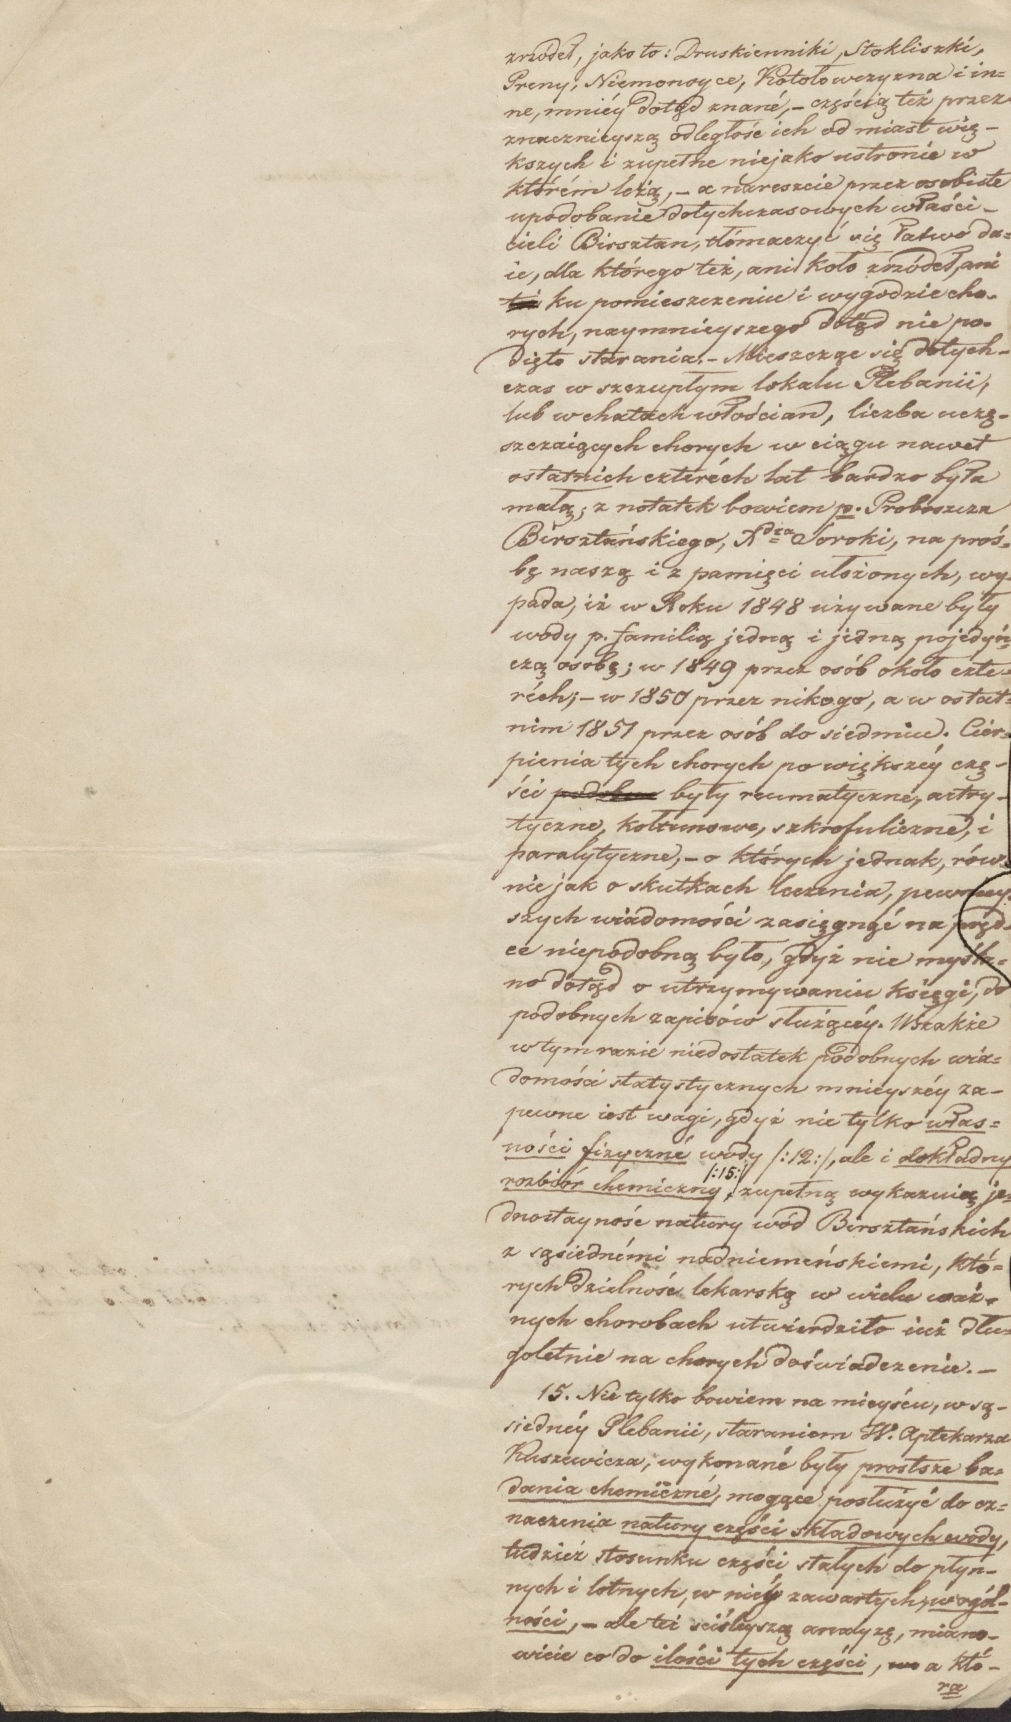 zrzódeł, jako to: Druskienniki, Stokliszki,
Preny, Niemonoyce, Kotołowczyzna i in=
ne, mniéy dotąd znané, – częścią też przez
znacznieyszą odległość ich od miast wię–
kszych i zupełne niejako ustronie w
którém leżą, – a nareszcie przez osobiste
upodobanie dotychczasowych właści–
cieli Birsztan, tłómaczyć się łatwo da=
ie, dla którego też, ani koło zrzódeł, ani
ku pomieszczeniu i wygodzie cho-
rych, naymnieyszego dotąd nie po-
dięto starania. – Mieszcząc się dotych–
czas w szczupłym lokalu Plebanii,
lub w chatach włościan, liczba uczę-
szczaiących chorych w ciągu nawet
ostatnich czteréch lat bardzo była
małą; z notatek bowiem p. Proboszcza
Birsztańskiego, Xdza Soroki, na proś-
bę naszą i z pamięci ułożonych, wy-
pada, iż w Roku 1848 używane były
wody p. familią jedną i jedną pojedyń
czą osobę; w 1849 przez osób około czte-
réch; – w 1850 przez nikogo, a w ostat=
nim 1851 przez osób do siedmiu. Cier-
pienia tych chorych po większéy czę-
ści były reumatyczne, artry-
tyczne, kołtunowe, szkrofuliczne, i
paralytyczne, – o których jednak, rów-
nie jak o skutkach leczenia, pewniey-
szych wiadomości zasięgnąć na pręd-
ce niepodobną było, gdyż nie myślą-
no dotąd o utrzymywaniu księgi, do
podobnych zapisów służącéy. Wszakże
w tym razie niedostatek podobnych wia=
domości statystycznych mnieyszéy za-
pewne iest wagi, gdyż nie tylko włas=
ności fizyczné wody /:12:/, ale i dokładny
rozbiór chemiczny /:15:/, zupełną wykazuią je-
dnostayność natury wód Birsztańskich
z sąsiednémi nadniemeńskiemi, któ=
rych dzielność lekarską w wielu waż-
nych chorobach utwierdziło iuż dłu-
goletnie na chorych doświadczenie. –
15. Nie tylko bowiem na mieyscu, w są-
siednéy Plebanii, staraniem W. Aptekarza
Kuszewicza, wykonané były prostsze ba=
dania chemiczné, mogące posłużyć do oz=
naczenia natury części składowych wody,
tudzież stosunku części stałych do płyn-
nych i lotnych, w niéy zawartych, w ogól-
ności, – ale też ściśleyszą analyzę, miano-
wicie co do ilości tych części, a któ-
ra